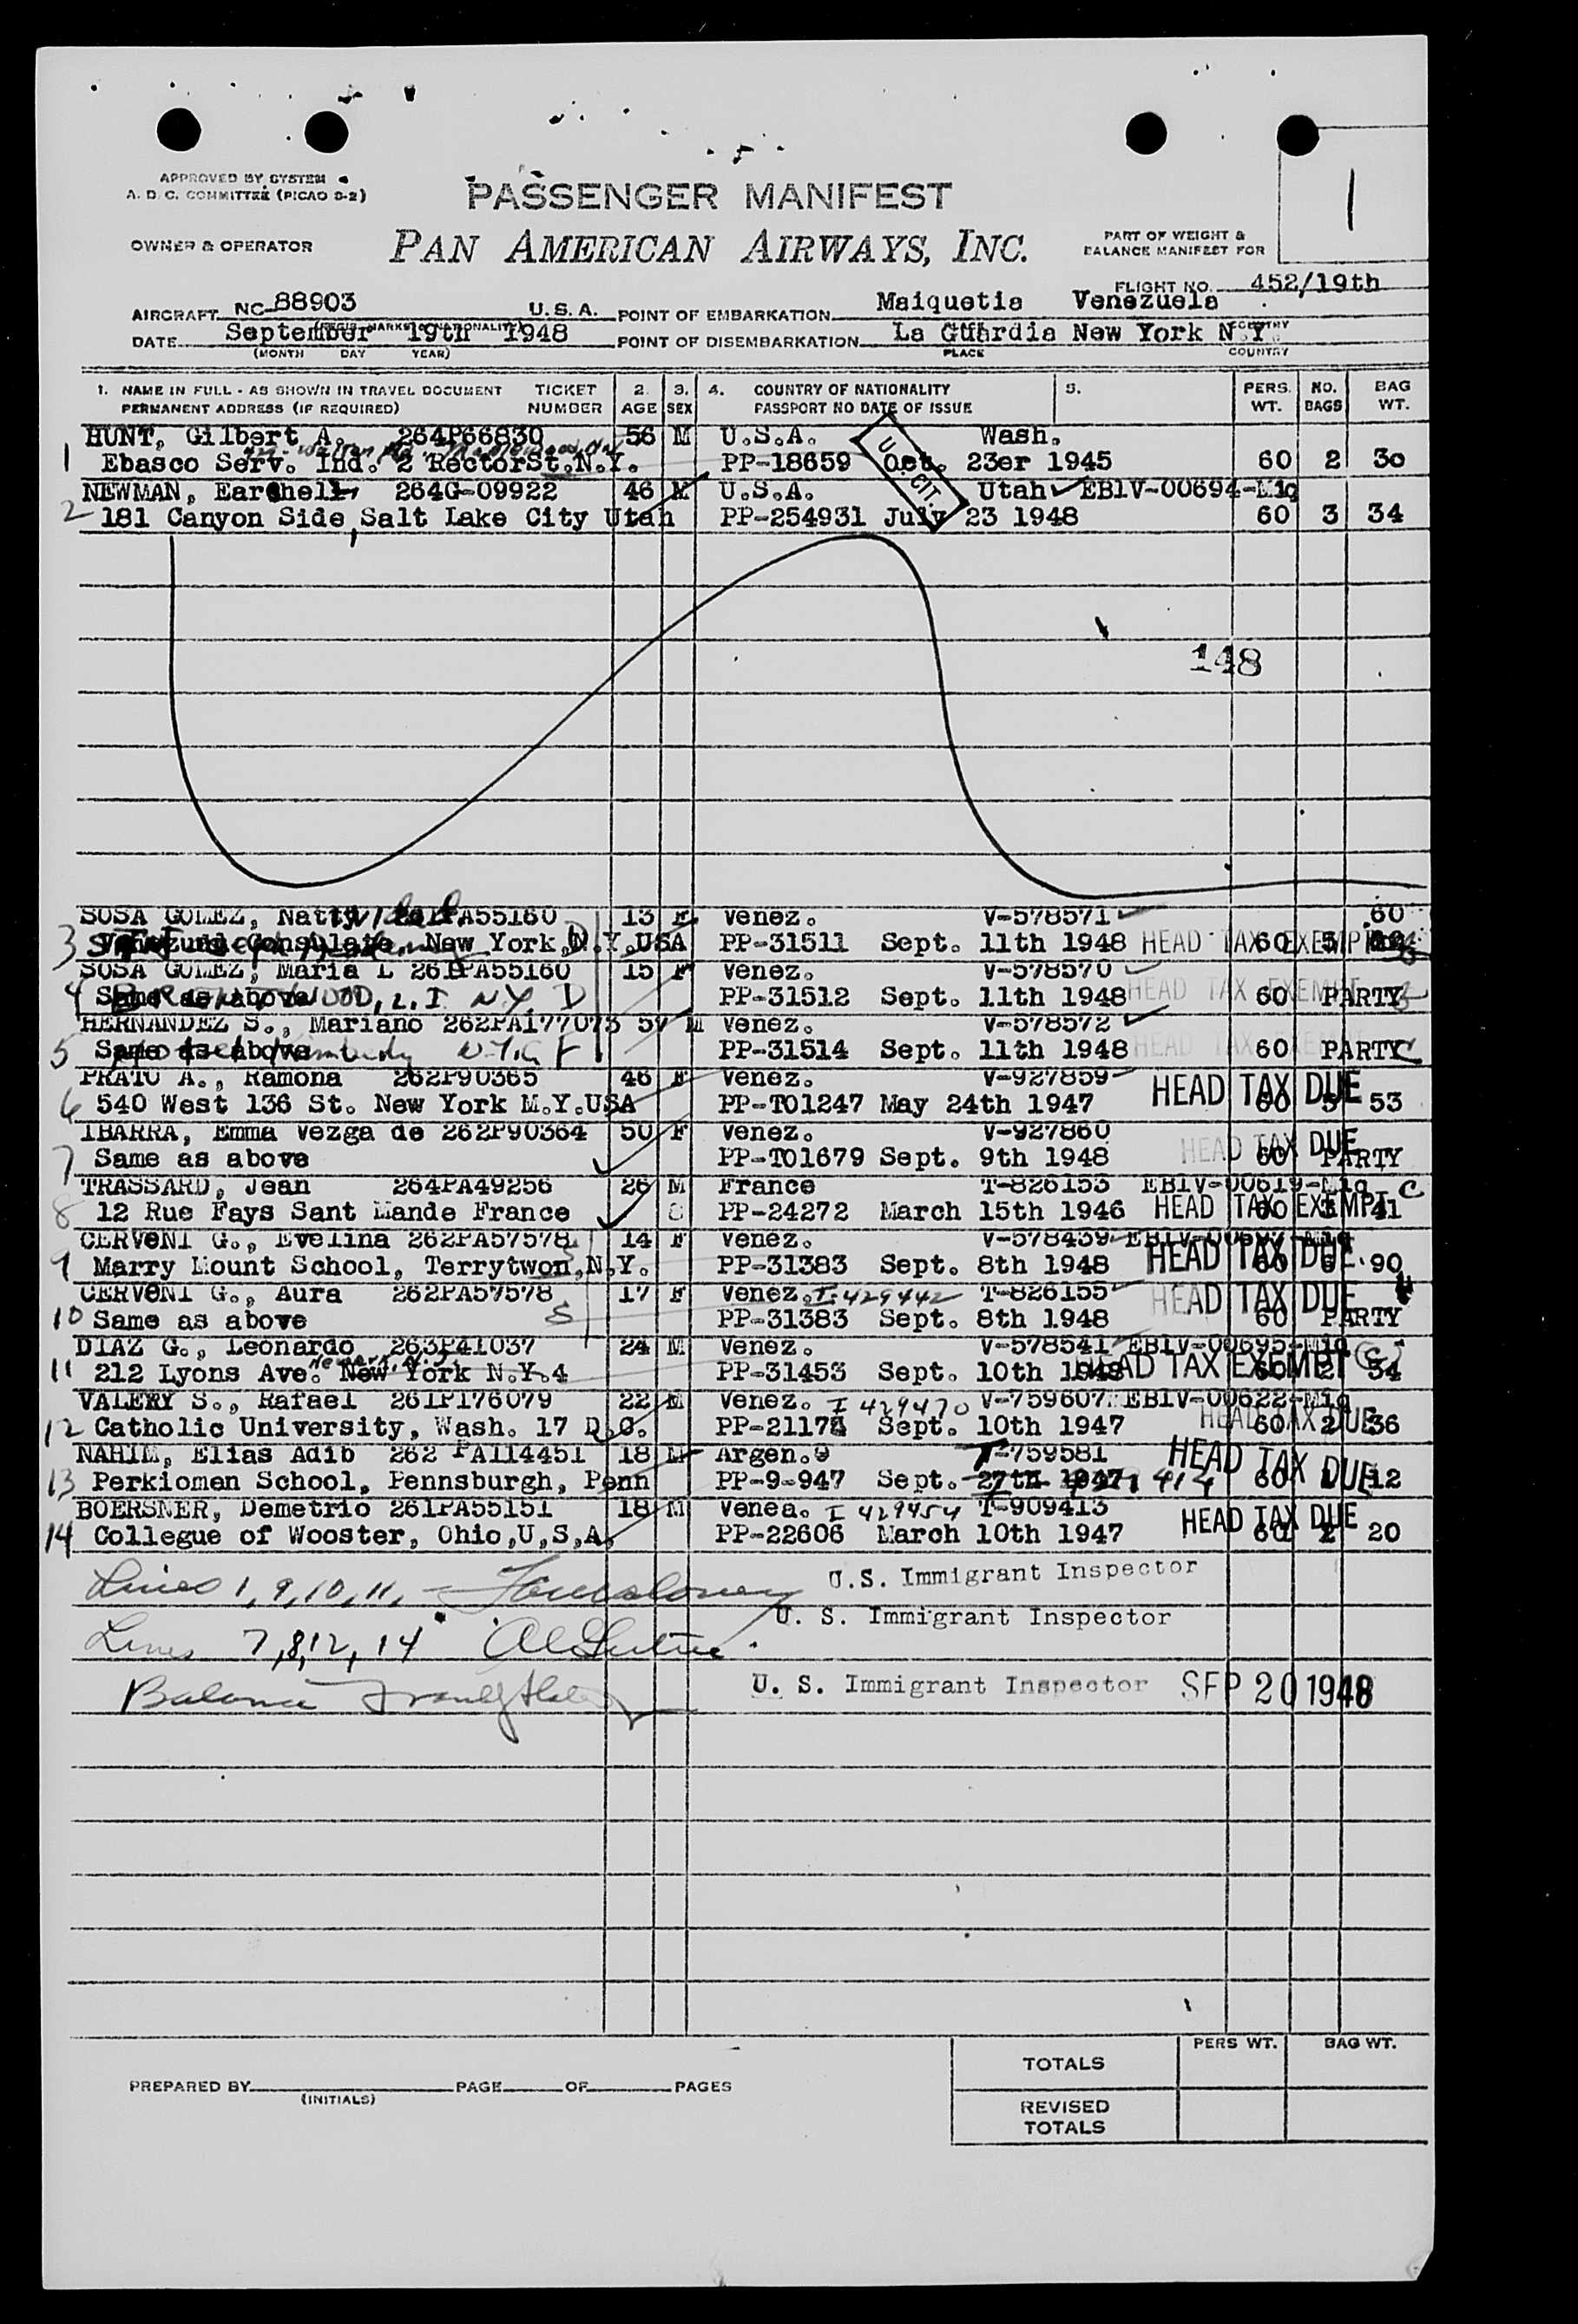 APPROVED BY SYSTEM
A. D. C. COMMITTEE (PICAO S-2)
PASSENGER MANIFEST
1
OWNER & OPERATOR
PAN AMERICAN AIRWAYS, INC.
PART OF WEIGHT &
BALANCE MANIFEST FOR
FLIGHT NO. 452/19th
AIRCRAFT NC-88903 U.S.A. POINT OF EMBARKATION Maiquetia Venezuela
DATE September 19th 1948 POINT OF DISEMBARKATION La Guardia New York N.Y.
(MONTH DAY YEAR) PLACE COUNTRY
1. NAME IN FULL - AS SHOWN IN TRAVEL DOCUMENT TICKET 2. 3. 4. COUNTRY OF NATIONALITY 5. PERS. NO. BAG
PERMANENT ADDRESS (IF REQUIRED) NUMBER AGE SEX PASSPORT NO DATE OF ISSUE WT. BAGS WT.
HUNT, Gilbert A. 264P66830 56 M U.S.A. Wash.
1 Ebasco Serv. Ind. 2 RectorSt.N.Y. PP-18659 Oct. 23er 1945 60 2 30
U.S. CIT.
NEWMAN, Earchell 264G-09922 46 M U.S.A. Utah EB1V-00694-Mig
2 181 Canyon Side, Salt Lake City Utah PP-254931 July 23 1948 60 3 34
148
SOSA GOMEZ, Natty 261PA55160 13 F Venez. V-578571 60
3 Consulate New York N.Y.USA PP-31511 Sept. 11th 1948 HEAD TAX EXEMPT 60 5
SOSA GOMEZ, Maria L 261PA55160 15 F Venez. V-578570
4 Same as above L.I. N.Y. D PP-31512 Sept. 11th 1948 HEAD TAX EXEMPT 60 PARTY
HERNANDEZ S., Mariano 262PA177073 57 M Venez. V-578572
5 Same as above N.Y.C F PP-31514 Sept. 11th 1948 HEAD TAX EXEMPT 60 PARTY
PRATO A., Ramona 262P90365 46 F Venez. V-927859
6 540 West 136 St. New York M.Y.USA PP-T01247 May 24th 1947 HEAD TAX DUE 60 53
IBARRA, Emma Vezga de 262P90364 50 F Venez. V-927860
7 Same as above PP-T01679 Sept. 9th 1948 HEAD TAX DUE 60 PARTY
TRASSARD, Jean 264PA49256 26 M France T-826153 EB1V-00619-Mig C
8 12 Rue Fays Sant Mande France PP-24272 March 15th 1946 HEAD TAX EXEMPT 60 41
CERVONI G., Evelina 262PA57578 14 F Venez. V-578439
9 Marry Mount School, Terrytwon,N.Y. PP-31383 Sept. 8th 1948 HEAD TAX DUE 60 90
CERVONI G., Aura 262PA57578 17 F Venez. I-429442 T-826155
10 Same as above S PP-31383 Sept. 8th 1948 HEAD TAX DUE 60 PARTY
DIAZ G., Leonardo 263P41037 24 M Venez. V-578541 EB1V-00695-Mig
11 212 Lyons Ave. Newark, N.J. New York N.Y.4 PP-31453 Sept. 10th 1948 HEAD TAX EXEMPT 60 2 34
VALERY S., Rafael 261P176079 22 M Venez. I 429470 V-759607 EB1V-00622-Mig
12 Catholic University, Wash. 17 D.C. PP-21178 Sept. 10th 1947 HEAD TAX DUE 60 2 36
NAHIM, Elias Adib 262 PA114451 18 M Argen. T-759581
13 Perkiomen School, Pennsburgh, Penn PP-9-947 Sept. 27th 1947 HEAD TAX DUE 60 1 12
BOERSNER, Demetrio 261PA55151 18 M Venea. I 429454 T-909413
14 Collegue of Wooster, Ohio,U,S,A, PP-22606 March 10th 1947 HEAD TAX DUE 60 2 20
Lines 1, 9, 10, 11, U.S. Immigrant Inspector
U. S. Immigrant Inspector
Lines 7,8,12, 14
Balance U. S. Immigrant Inspector SEP 20 1948
PERS WT. BAG WT.
TOTALS
PREPARED BY PAGE OF PAGES
(INITIALS)
REVISED
TOTALS